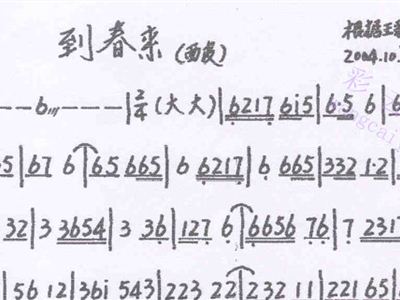 到春来 (西皮) 根据王
2004.10.
---6,,,----|2/4(大大)|6217 6i5|6·5 6|6
5|67 6|65 665|6 6217|6 665|332 1·2|
32|3 3654|3 36|127 6|6656 76|7 2317
|56 12|36i 543|223 22|232 11|221 65|